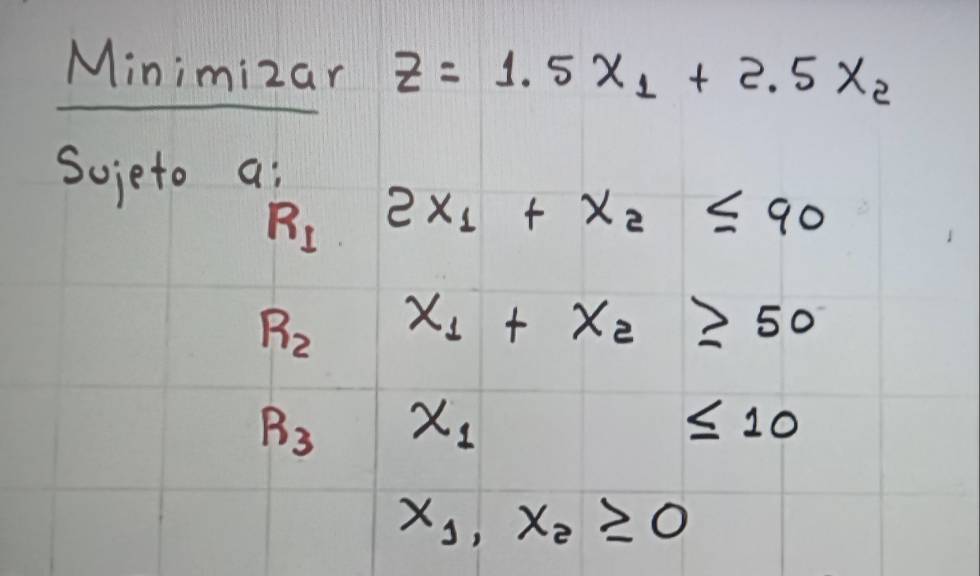 Minimizar Z = 1.5 X₁ + 2.5 X₂
Sujeto a:
R₁ 2X₁ + X₂ ≤ 90
R₂ X₁ + X₂ ≥ 50
R₃ X₁ ≤ 10
X₁, X₂ ≥ 0